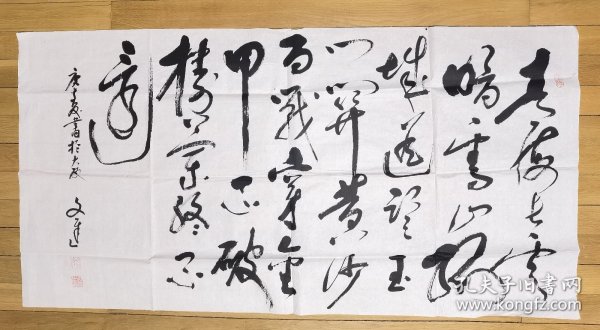 青海長雲
暗雪山孤
城遥望玉
門關黄沙
百戰穿金
甲不破
樓蘭終不
還
書於大
孔夫子旧书网
www.kongfz.com